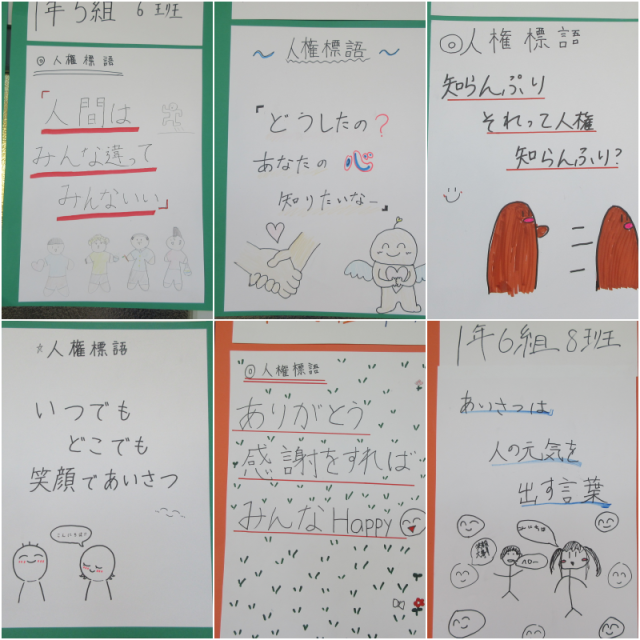 1年5組 6班
◎人権標語
「人間は
みんな違って
みんないい」
人権標語
「どうしたの?
あなたの心
知りたいなー」
◎人権標語
知らんぷり
それって人権
知らんふり?
☆人権標語
いつでも
どこでも
笑顔であいさつ
こんにちは!
◎人権標語
ありがとう
感謝をすれば
みんなHappy
1年6組 8班
あいさつは
人の元気を
出す言葉